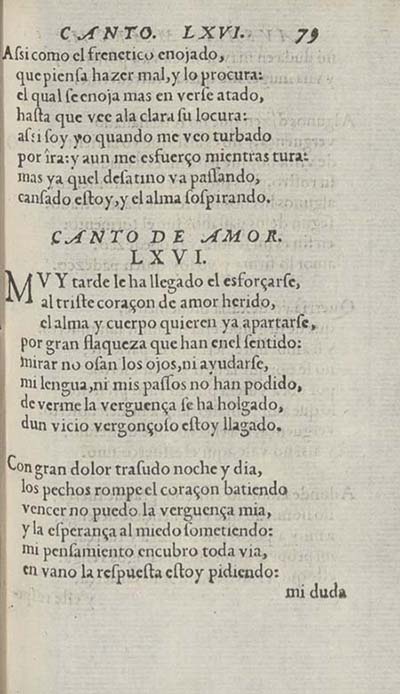 CANTO. LXVI. 79
Assi como el frenetico enojado,
que piensa hazer mal, y lo procura:
el qual se enoja mas en verse atado,
hasta que vee ala clara su locura:
assi soy yo quando me veo turbado
por ira: y aun me esfuerço mientras tura:
mas ya quel desatino va passando,
cansado estoy, y el alma sospirando.
CANTO DE AMOR.
LXVI.
MVY tarde le ha llegado el esforçarse,
al triste coraçon de amor herido,
el alma y cuerpo quieren ya apartarse,
por gran flaqueza que han enel sentido:
mirar no osan los ojos, ni ayudarse,
mi lengua, ni mis passos no han podido,
de verme la verguença se ha holgado,
dun vicio vergonçoso estoy llagado.
Con gran dolor trasudo noche y dia,
los pechos rompe el coraçon batiendo
vencer no puedo la verguença mia,
y la esperança al miedo sometiendo:
mi pensamiento encubro toda via,
en vano la respuesta estoy pidiendo:
mi duda